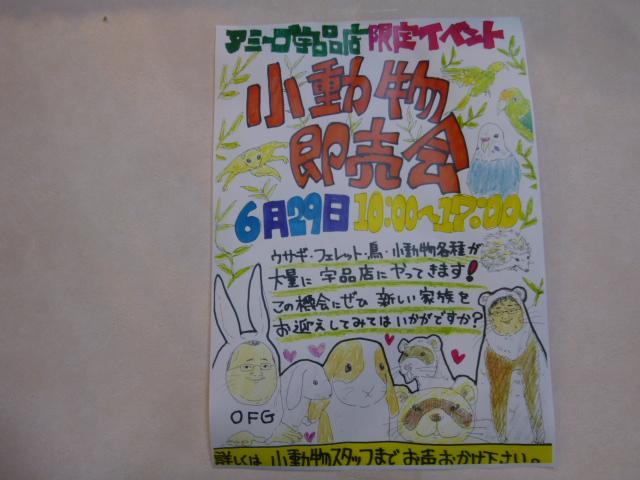 アミーゴ宇品店限定イベント
小動物
即売会
6月29日 10:00~17:00
ウサギ・フェレット・鳥・小動物各種が
大量に宇品店にやってきます!
この機会にぜひ新しい家族を
お迎えしてみてはいかがですか?
OFG
詳しくは小動物スタッフまでお声おかけ下さい。